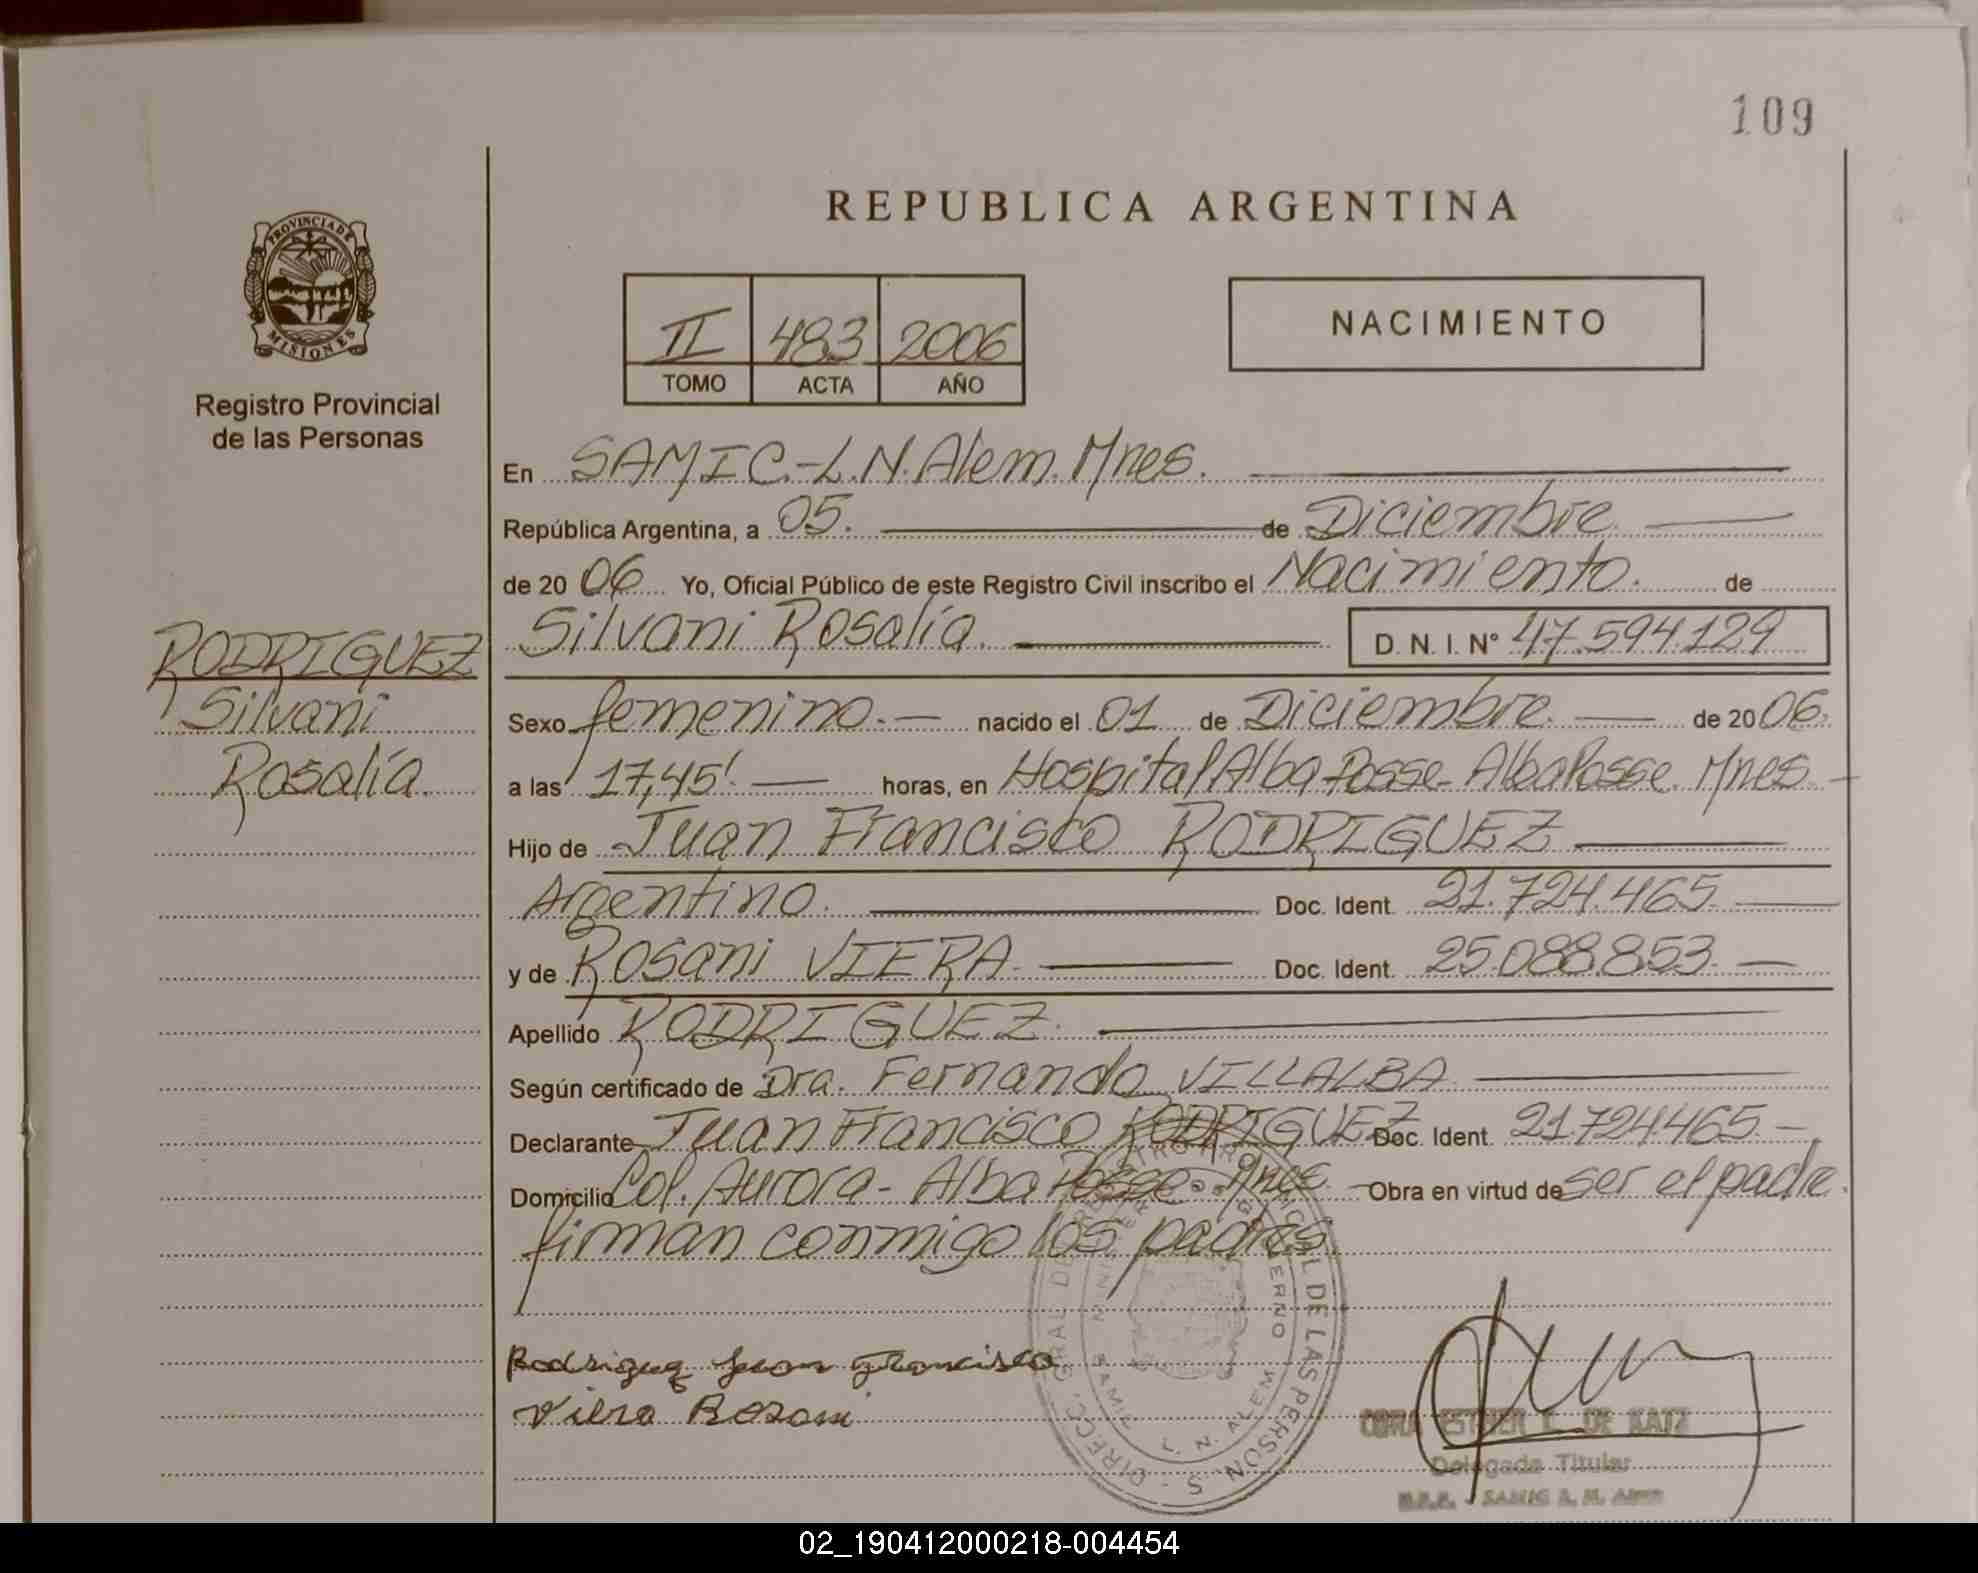 109
REPUBLICA ARGENTINA
PROVINCIA DE
MISIONES
Registro Provincial
de las Personas
II 483 2006
TOMO ACTA AÑO
NACIMIENTO
En SAMIC.-L.N.Alem. Mnes.
República Argentina, a 05. de Diciembre
de 20 06 Yo, Oficial Público de este Registro Civil inscribo el Nacimiento. de
Silvani Rosalía. D. N. I. N° 47.594.129
RODRIGUEZ
Silvani
Rosalía.
Sexo femenino.- nacido el 01 de Diciembre de 20 06.
a las 17,45' horas, en Hospital Alba Posse- Alba Posse. Mnes.-
Hijo de Juan Francisco RODRIGUEZ
Argentino. Doc. Ident. 21.724.465
y de Rosani VIERA Doc. Ident. 25.088.853
Apellido RODRIGUEZ.
Según certificado de Dra. Fernando VILLALBA
Declarante Juan Francisco RODRIGUEZ Doc. Ident. 21.724.465-
Domicilio Col. Aurora- Alba Posse. Mnes - Obra en virtud de ser el padre.
firman conmigo los padres
Rodriguez Juan Francisco
Viera Rosani
DIRECC. GRAL DE REGISTRO PROVINCIAL DE LAS PERSONAS
MINISTERIO DE GOBIERNO
SAMIC L. N. ALEM
ESTHER DE KATZ
Delegada Titular
SAMIC
02_190412000218-004454